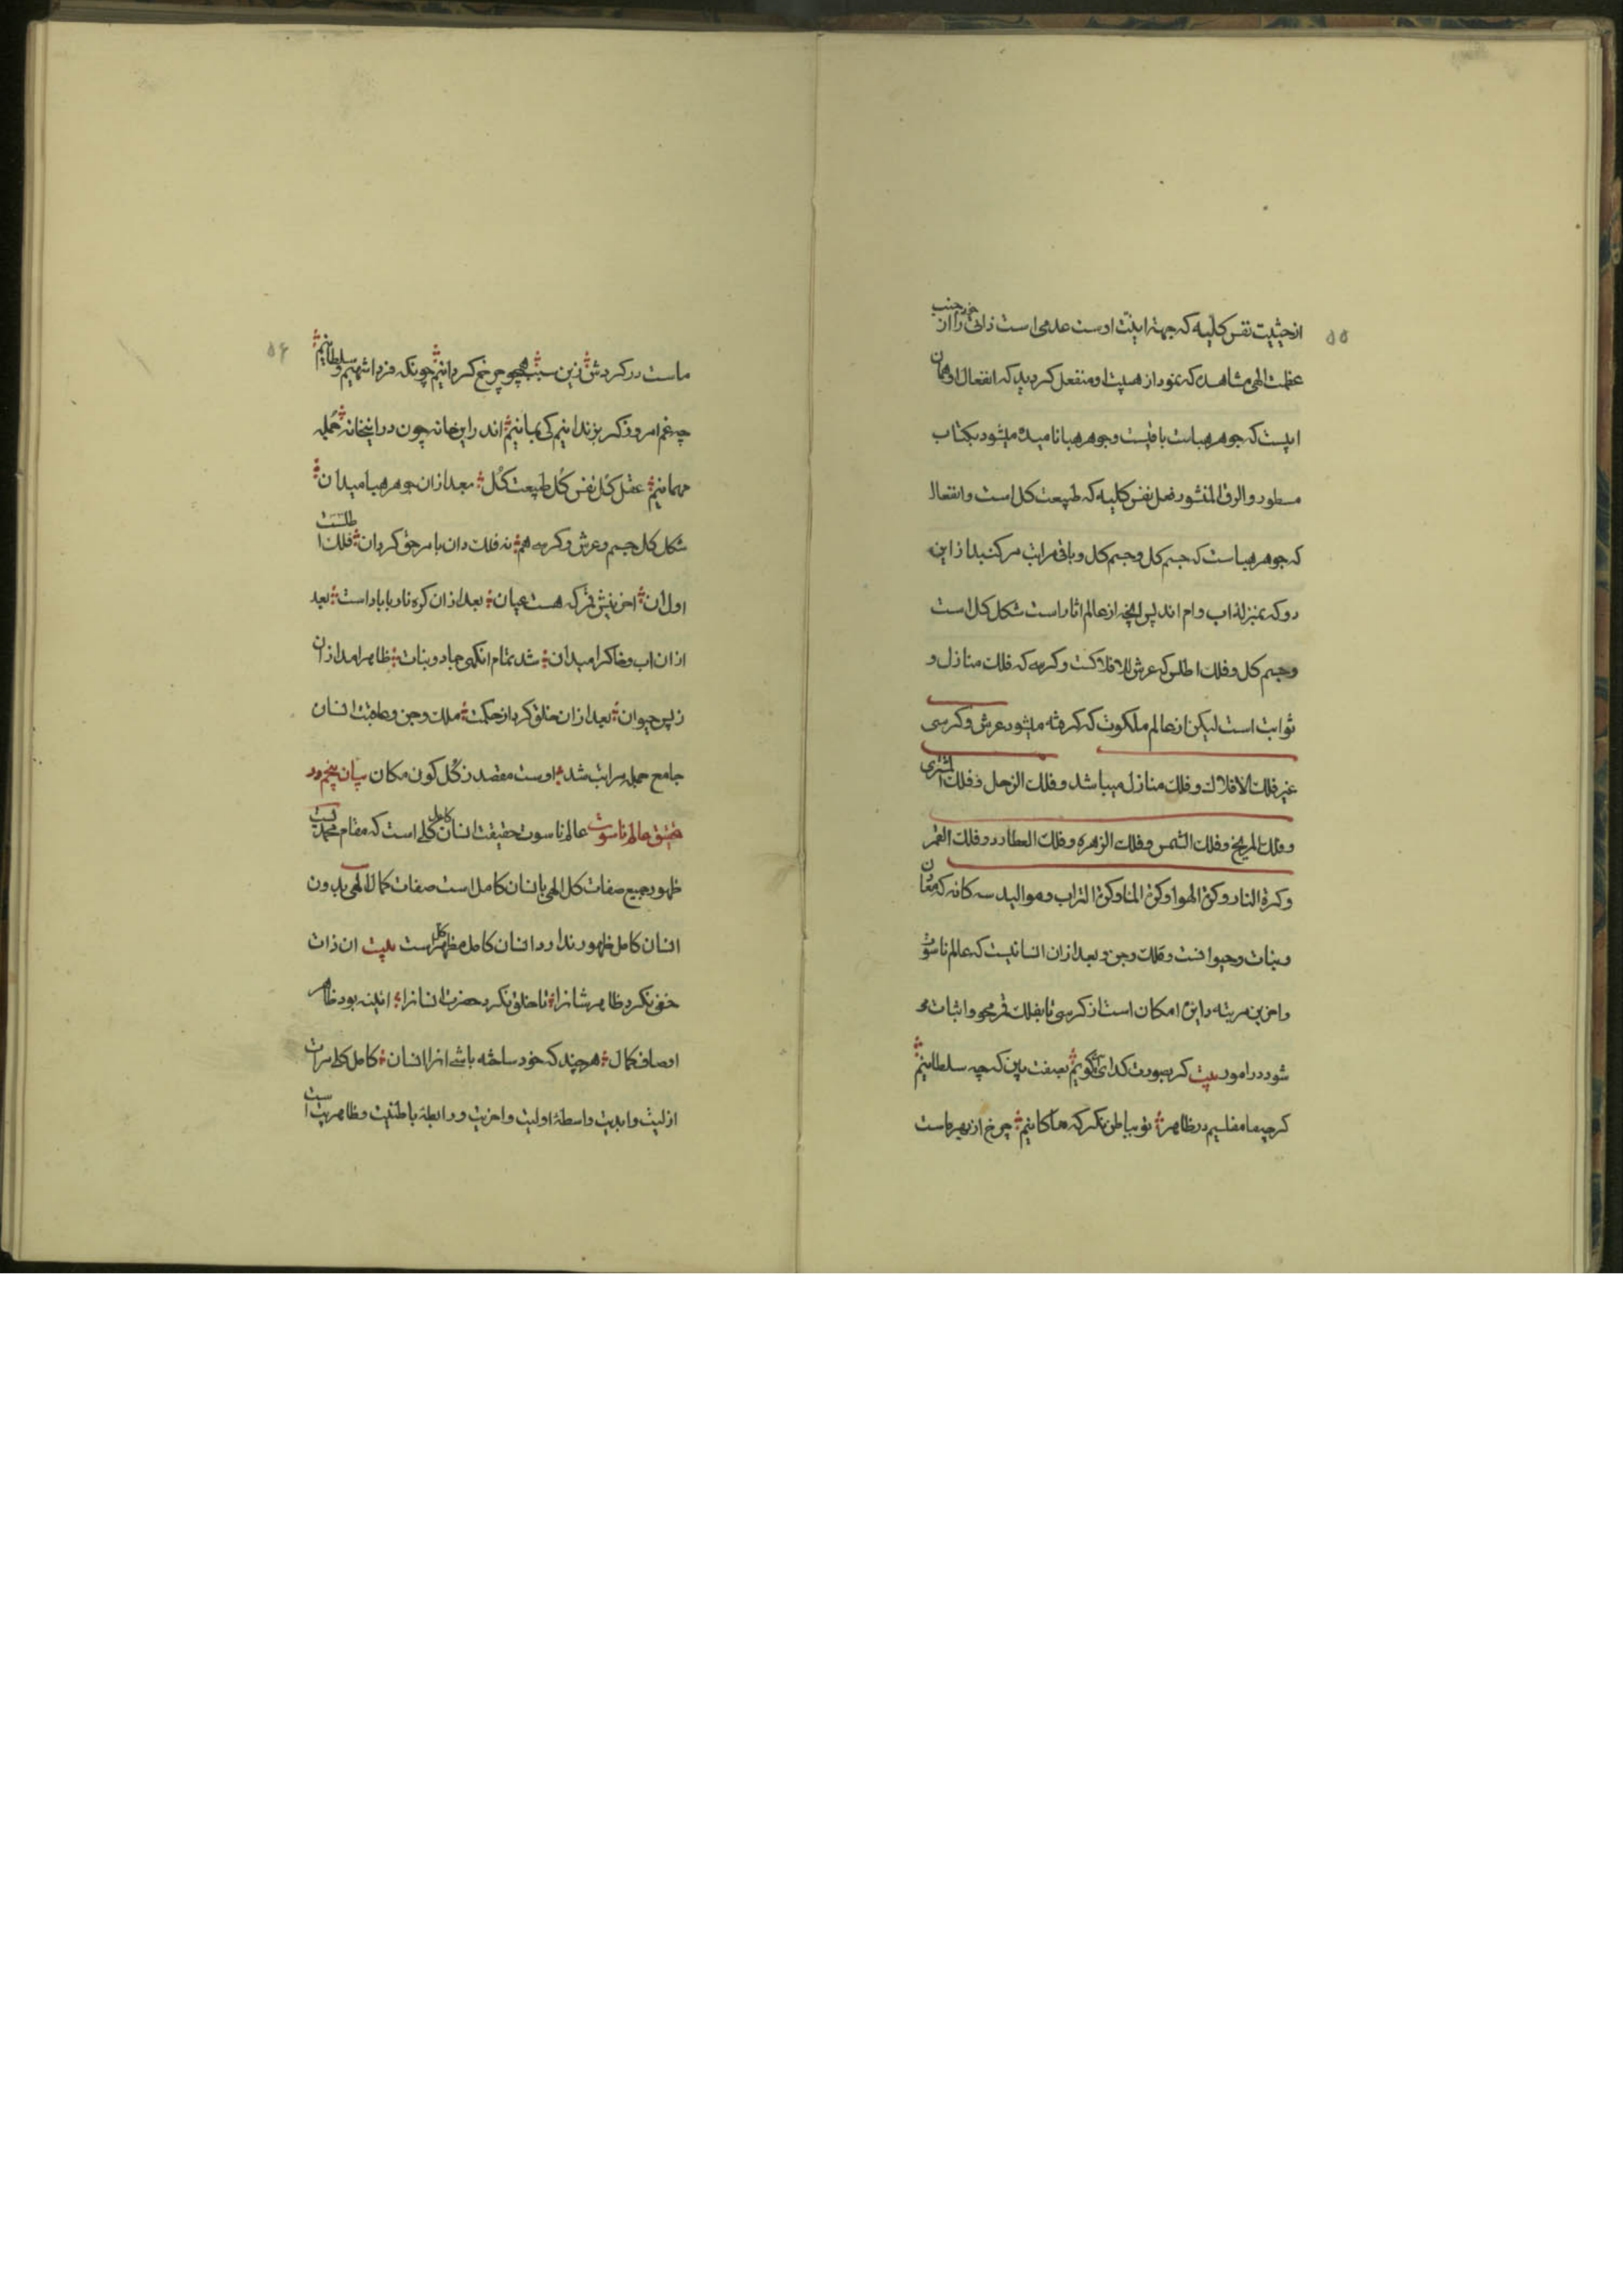 ۵۵
از حیثیت نفس کلیه که جهة ابدیت اوست عدمی است ذاتی را از خود جنب
عظمت الهی مشاهده که نمود از هیبت او منفعل کردید که انفعال او همان
ایست که جوهر هباست یا فیست و جوهر هبا نامیده میشود بکتاب
مسطور و الرق المنشور فعل نفس کلیه که طبیعت کل است و انفعال
که جوهر هبا است که جسم کل و جسم کل و باقی مراتب مرکبند از این
دو که بمنزله اب و ام اند پس انچه از عالم اثار است شکل کل است
و جسم کل و فلک اطلس که عرش الافلاکست و کرسی که فلک منازل و
ثوابت است لیکن از عالم ملکوت که کرفته میشود عرش و کرسی
غیر فلک الافلاک و فلک منازل میباشد و فلک الزحل و فلک المشتری
و فلک المریخ و فلک الشمس و فلک الزهره و فلک العطارد و فلک القمر
و کرة النار و کرة الهوا و کرة الما و کرة التراب و موالید سه کانه که معادن
و نبات و حیوانست و ملک و جن و بعد از ان انسانیست که عالم ناسوت
و اخرین مرتبه دایره امکان است از کرسی تا بفلک قمر محو و اثبات
شود در امور بیت کر بصورت کدای کوییم بصفت بین که چه سلطانیم
کرچه ما مفلسیم در ظاهر تو بباطن نکر که ما کانیم چرخ از بهر ماست
۵۶
ماست در کردش زین سبب همچو چرخ کردانیم چونکه فردا شهیم و سلطانیم
چه غم امروز کر بزندانیم کی بمانیم اندر این خانه چون در اینخانه جمله
مهمانیم عقل کل نفس کل طبیعت کل بعد از ان جوهر هبا میدان
شکل کل جسم و عرش و کرسی هم نه فلک دان بامر حق کردان فلک اطلست
اول ان اخرینش قمر که هست عیان بعد از ان کره نار یا باد است بعد
از ان اب و خاک را میدان شد تمام انکهی جماد و نبات ظاهر امد از ان
ز پس حیوان بعد از ان خلق کرد از حکمت ملک و جن و عاقبت انسان
جامع جمله مراتب شد اوست مقصد ز کل کون مکان بیان پنجم در
تحقیق عالم ناسوت عالم ناسوت حقیقت انسان کامل کلی است که مقام محمدیست
ظهور جمیع صفات کل الهی بانسان کامل است صفات کمال الهی بدون
انسان کامل ظهور ندارد انسان کامل مظهر کل است بیت ان ذات
خفی نکرد ظاهر شانرا تا خلق نکرد حضرت انسانرا ائینه بود ظاهر
اوصاف کمال هر چند که خود ساخته باشی انرا انسان کامل کلی مرات
ازلیت و ابدیت واسطهٔ اولیت و اخریت و رابطهٔ باطنیت و ظاهریت است